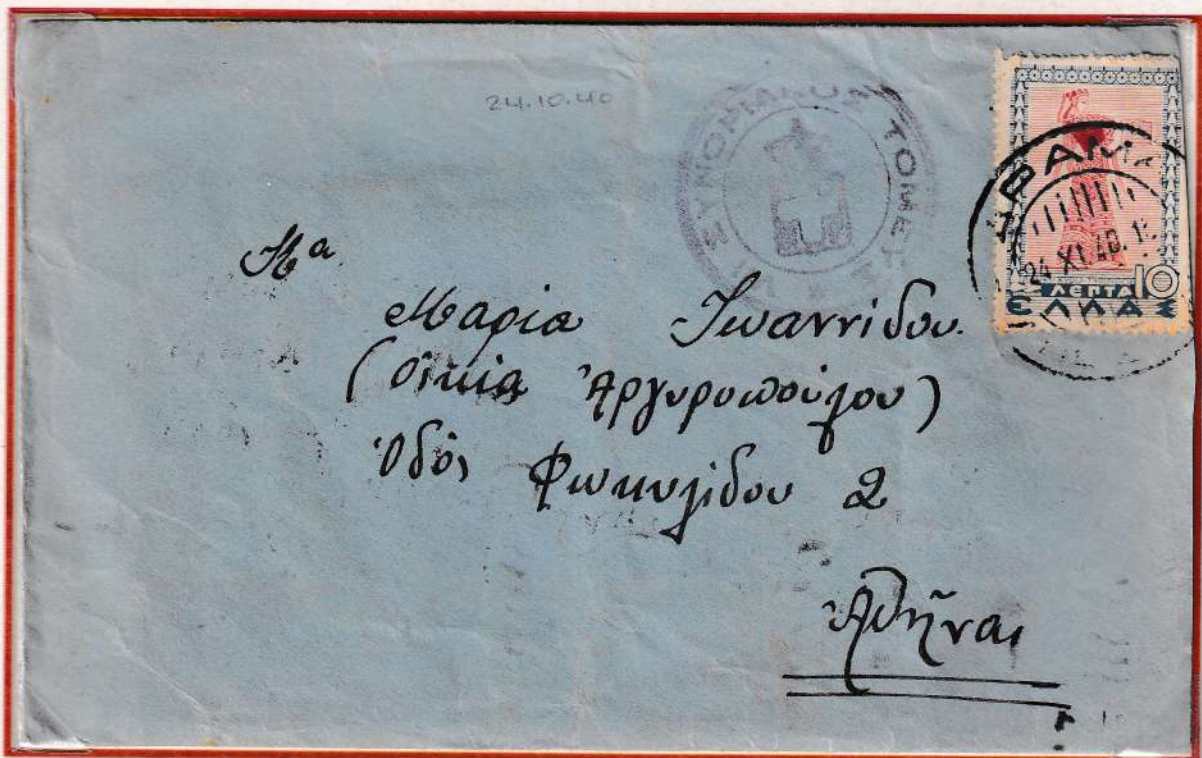 24.10.40
ΣΥΝΟΡΙΑΚΟΣ ΤΟΜΕΥΣ
ΔΡΑΜΑ
24 XI 40. 1
ΛΕΠΤΑ 10
ΕΛΛΑΣ
Μα
Μαρία Ἰωαννίδου.
(Οἰκία Ἀργυροπούλου)
Ὁδὸς Φωκυλίδου 2
Ἀθῆναι